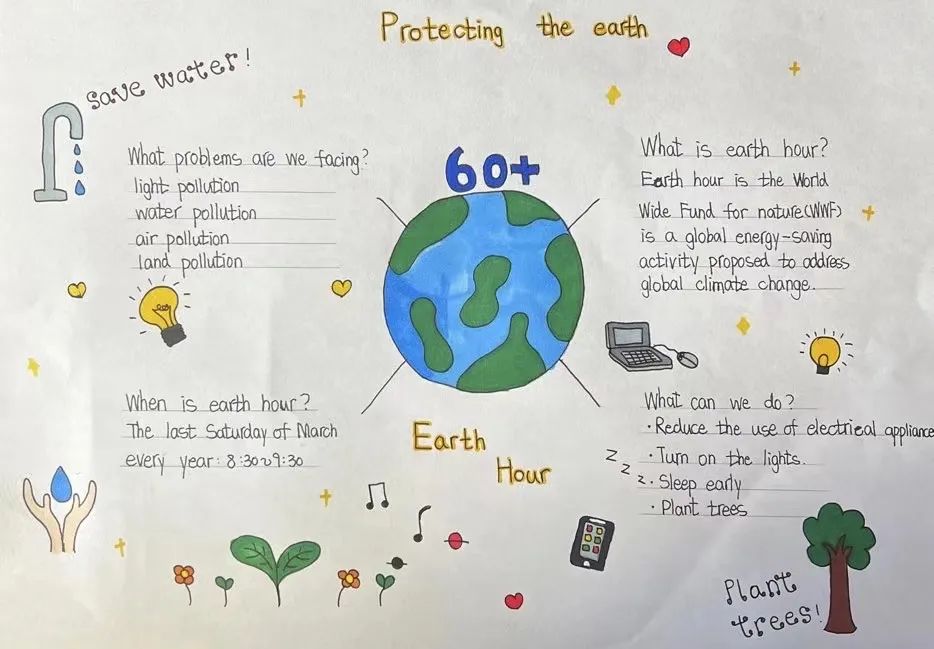 Protecting the earth
save water!
What problems are we facing?
light pollution
water pollution
air pollution
land pollution
60+
What is earth hour?
Earth hour is the World
Wide Fund for nature(WWF)
is a global energy-saving
activity proposed to address
global climate change.
When is earth hour?
The last Saturday of March
every year: 8:30~9:30
Earth
Hour
What can we do?
·Reduce the use of electrical appliance
·Turn on the lights.
·Sleep early
·Plant trees
z z z
Plant
trees!